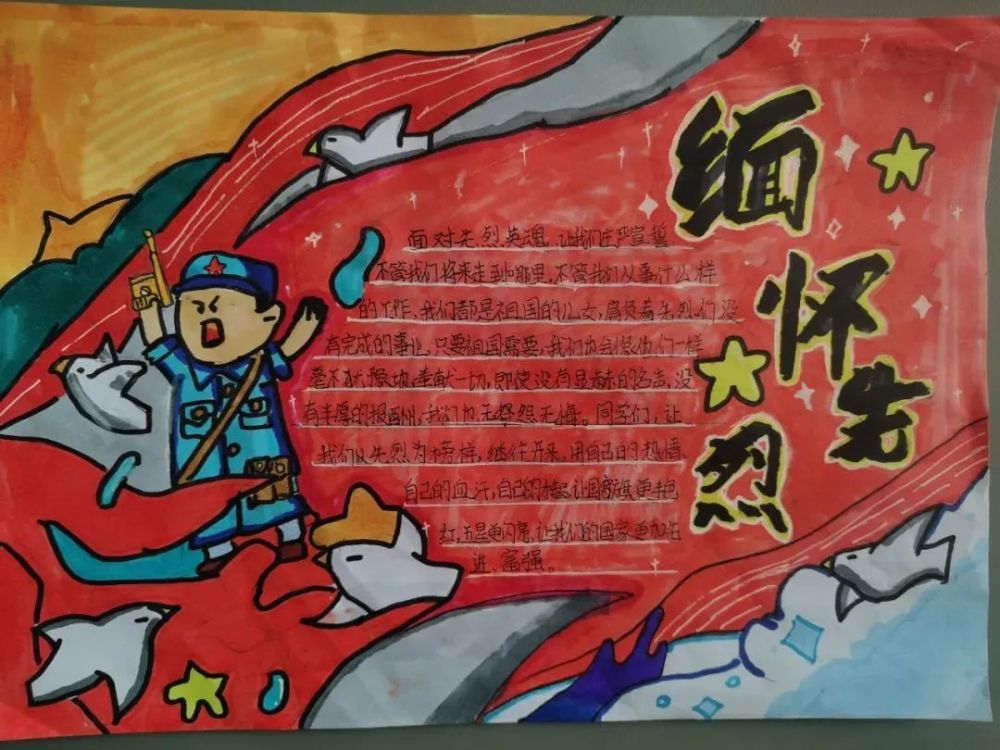 缅怀先烈
面对先烈英魂，让我们庄严宣誓，
不管我们将来走到哪里，不管我们从事什么样
的工作，我们都是祖国的儿女，肩负着先烈们没
有完成的事业。只要祖国需要，我们也会像他们一样
毫不犹豫地奉献一切，即使没有显赫的名声，没
有丰厚的报酬，我们也无怨无悔。同学们，让
我们以先烈为榜样，继往开来，用自己的热情，
自己的血汗，自己的 让国旗更
红，五星更闪亮，让我们的国家更加先
进、富强。